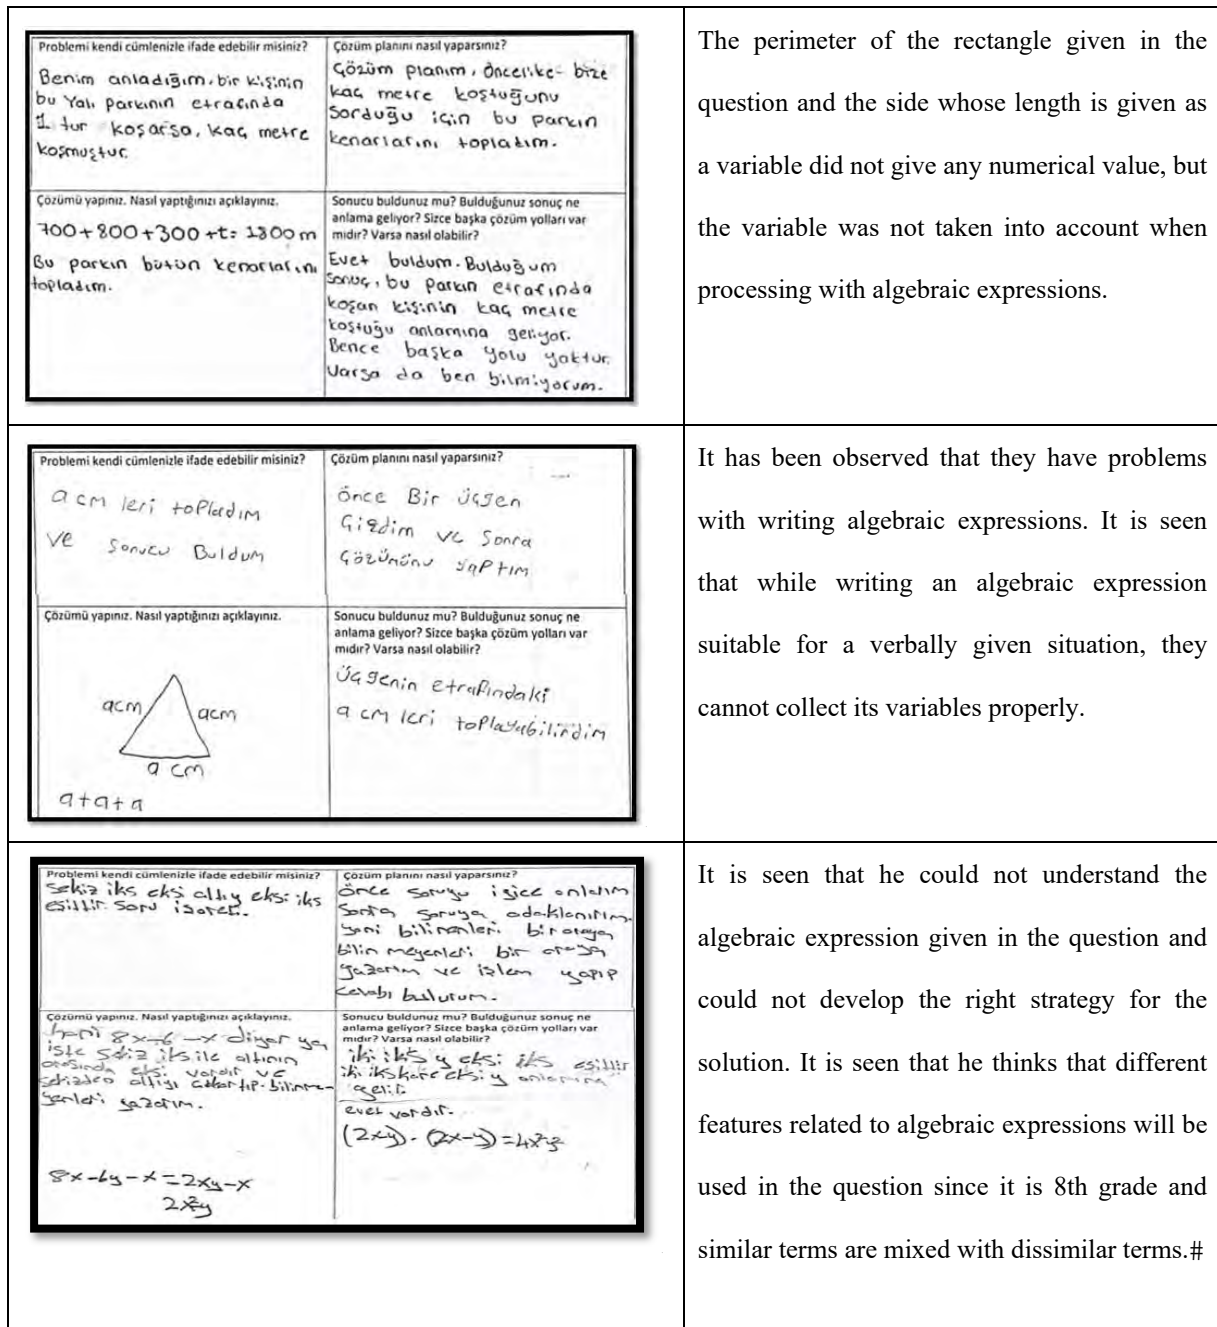 Problemi kendi cümlenizle ifade edebilir misiniz?
Benim anladığım, bir kişinin
bu Yalı parkının etrafında
1 tur koşarsa, kaç metre
koşmuştur.
Çözüm planını nasıl yaparsınız?
Çözüm planım, öncelike bize
kaç metre koştuğunu
sorduğu için bu parkın
kenarlarını topladım.
Çözümü yapınız. Nasıl yaptığınızı açıklayınız.
700+800+300+t= 1800 m
Bu parkın bütün kenarlarını
topladım.
Sonucu buldunuz mu? Bulduğunuz sonuç ne
anlama geliyor? Sizce başka çözüm yolları var
mıdır? Varsa nasıl olabilir?
Evet buldum. Bulduğum
sonuç, bu parkın etrafında
koşan kişinin kaç metre
koştuğu anlamına geliyor.
Bence başka yolu yoktur.
Varsa da ben bilmiyorum.
The perimeter of the rectangle given in the
question and the side whose length is given as
a variable did not give any numerical value, but
the variable was not taken into account when
processing with algebraic expressions.
Problemi kendi cümlenizle ifade edebilir misiniz?
a cm leri topladım
ve sonucu Buldum
Çözüm planını nasıl yaparsınız?
önce Bir üçgen
Çizdim ve Sonra
Çözümünü yaptım
Çözümü yapınız. Nasıl yaptığınızı açıklayınız.
acm acm
a cm
a+a+a
Sonucu buldunuz mu? Bulduğunuz sonuç ne
anlama geliyor? Sizce başka çözüm yolları var
mıdır? Varsa nasıl olabilir?
üçgenin etrafındaki
a cm leri toplayabilirdim
It has been observed that they have problems
with writing algebraic expressions. It is seen
that while writing an algebraic expression
suitable for a verbally given situation, they
cannot collect its variables properly.
Problemi kendi cümlenizle ifade edebilir misiniz?
sekiz iks eksi altıy eksi iks
eşittir soru işareti.
Çözüm planını nasıl yaparsınız?
önce soruyu iyice anlarım
sonra soruya odaklanırım.
yani bilinenleri bir araya
bilinmeyenleri bir araya
yazarım ve işlem yapıp
cevabı bulurum.
Çözümü yapınız. Nasıl yaptığınızı açıklayınız.
hani 8x-6 -x diyor ya
işte sekiz iks ile altının
arasında eksi vardır ve
sekizden altıyı çıkartıp bilinme-
yenleri yazarım.
8x-6y-x=2xy-x
2x²y
Sonucu buldunuz mu? Bulduğunuz sonuç ne
anlama geliyor? Sizce başka çözüm yolları var
mıdır? Varsa nasıl olabilir?
iki iks y eksi iks eşittir
iki iks kare eksi y anlamına
gelir.
evet vardır.
(2xy). (2x-y)=4x²y²
It is seen that he could not understand the
algebraic expression given in the question and
could not develop the right strategy for the
solution. It is seen that he thinks that different
features related to algebraic expressions will be
used in the question since it is 8th grade and
similar terms are mixed with dissimilar terms.#